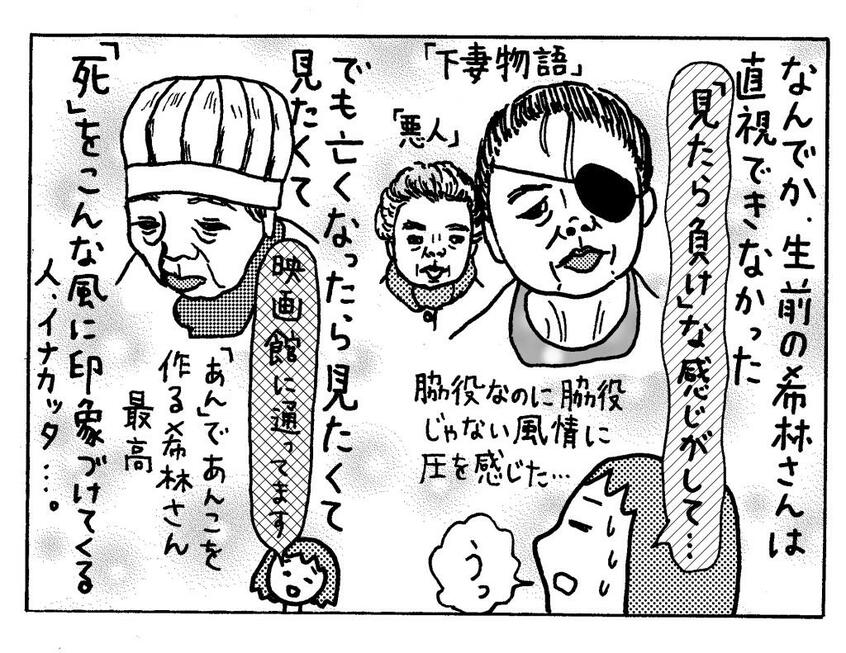 なんでか、生前の希林さんは
直視できなかった
「見たら負け」な感じがして…
「下妻物語」
「悪人」
脇役なのに脇役
じゃない風情に
圧を感じた…
うっ
でも亡くなったら見たくて
見たくて
映画館に通ってます
「あん」であんこを
作る希林さん
最高
「死」をこんな風に印象づけてくる
人、イナカッタ…。